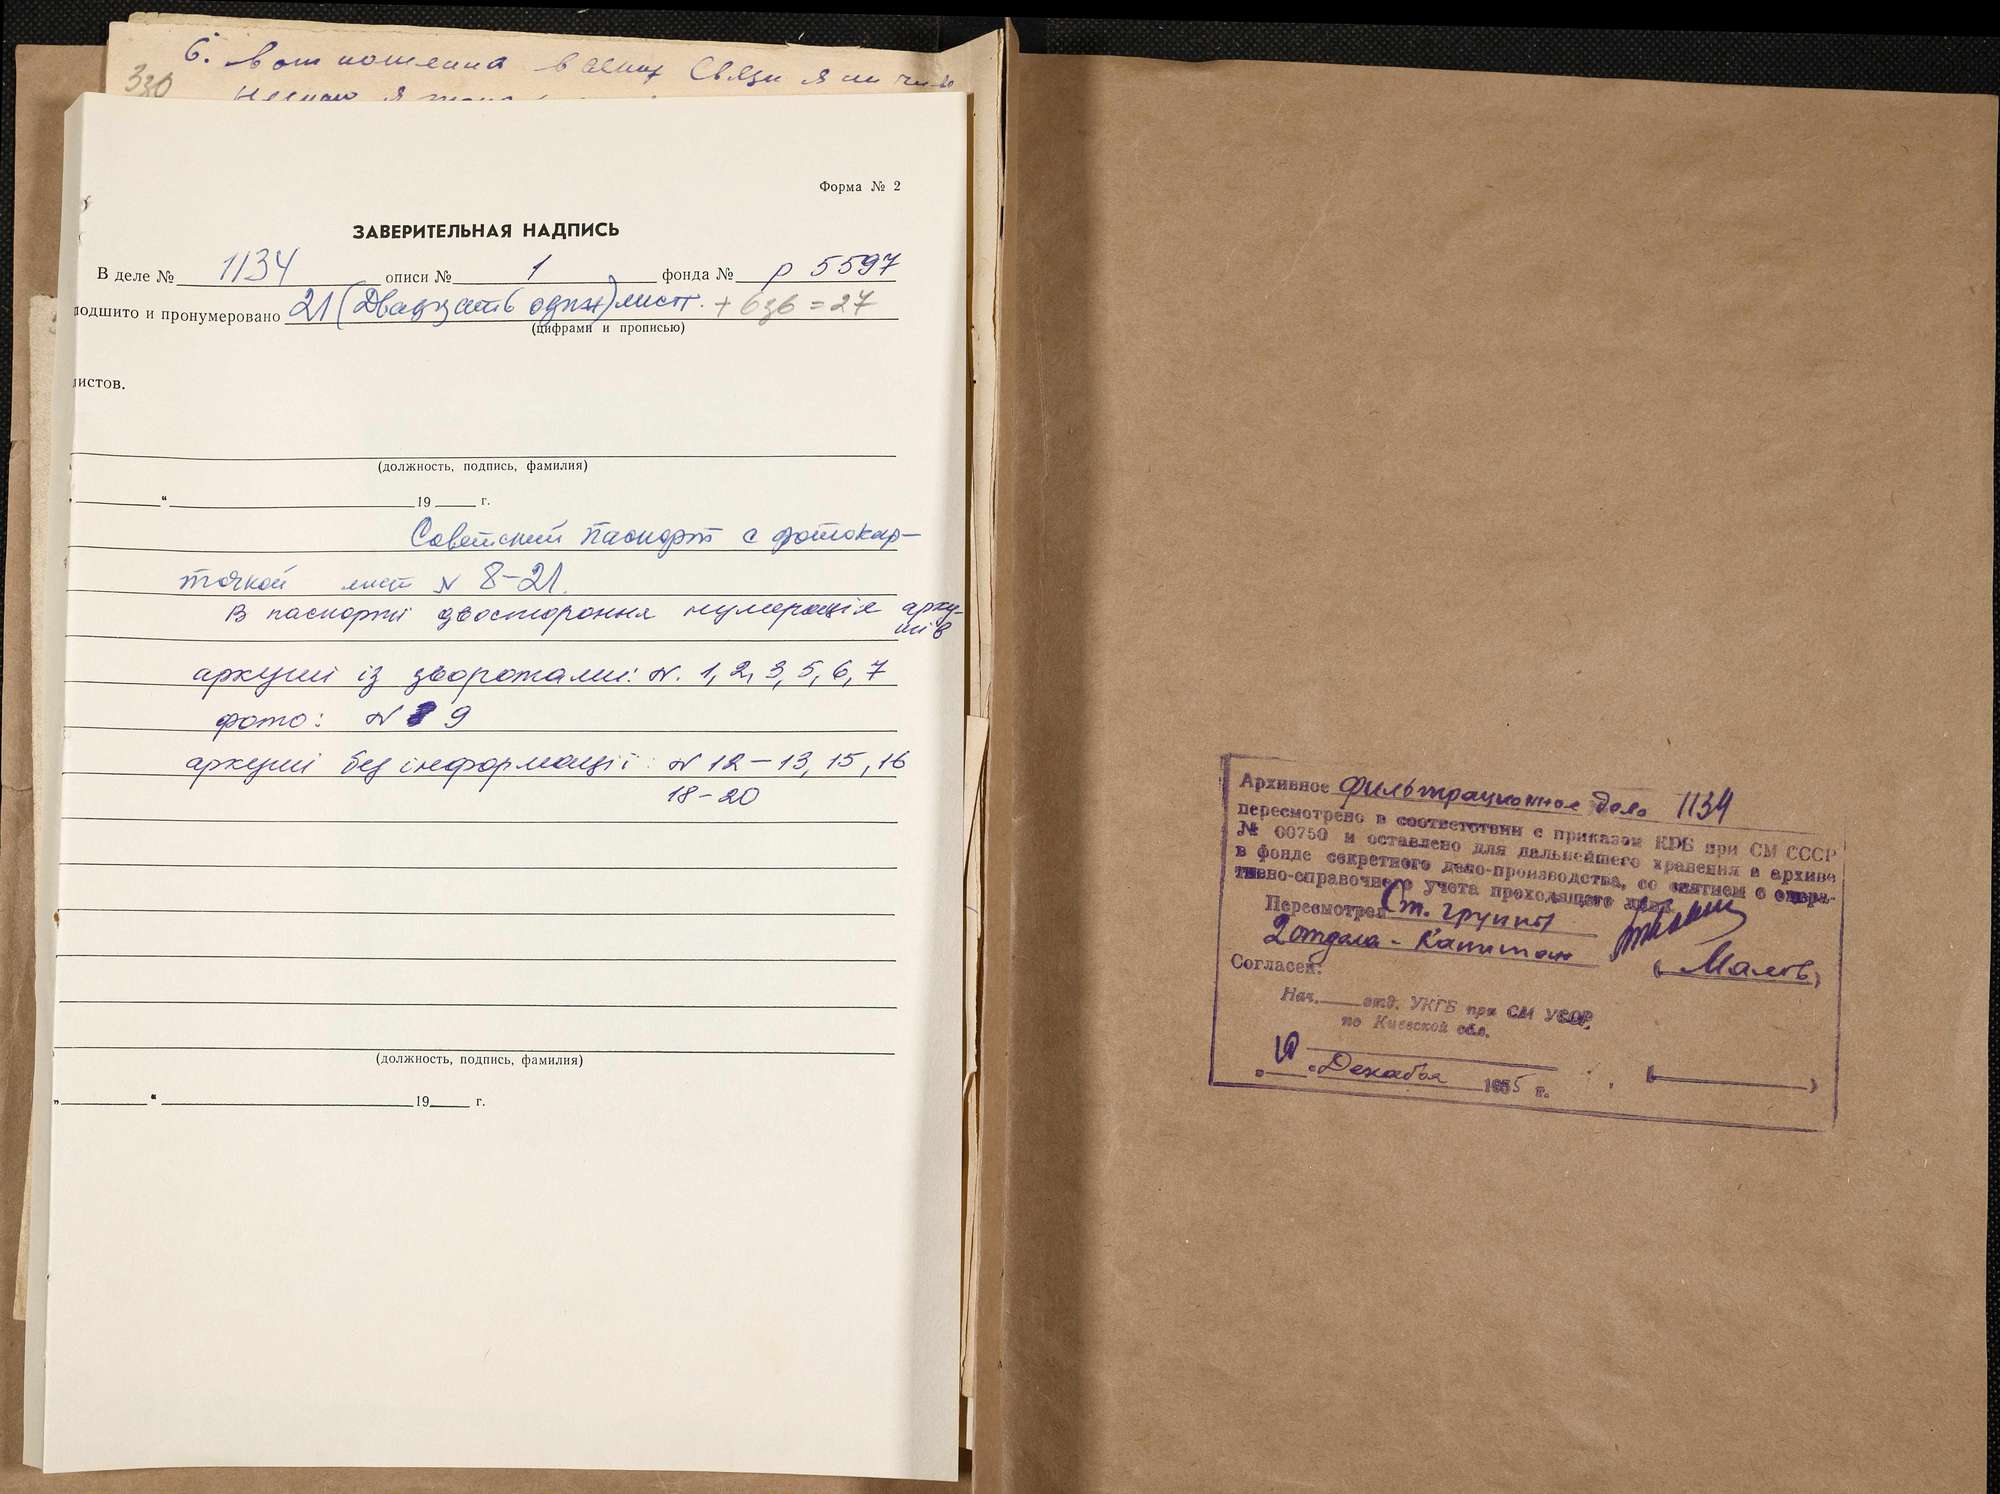 6. в отношении в алиих Связи я ни чего
3зв
Форма № 2
ЗАВЕРИТЕЛЬНАЯ НАДПИСЬ
В деле № 1134 описи № 1 фонда № р 5597
подшито и пронумеровано 21 (Двадцать один) лист. + 6зв = 27
(цифрами и прописью)
листов.
(должность, подпись, фамилия)
„ “ 19 г.
Советский паспорт с фотокар-
точкой лист № 8-21.
В паспорті двостороння нумерація арку-
шів
аркуші із зворотами: № 1, 2, 3, 5, 6, 7
фото: № 9
аркуші без інформації: № 12-13, 15, 16
18-20
(должность, подпись, фамилия)
„ “ 19 г.
Архивное фильтрационное дело 1134
пересмотрено в соответствии с приказом КГБ при СМ СССР
№ 00750 и оставлено для дальнейшего хранения в архиве
в фонде секретного дело-производства, со снятием с опера-
тивно-справочного учета проходящего лица.
Пересмотрел Ст. группы
2 отдела - Капитан (Малов)
Согласен:
Нач. отд. УКГБ при СМ УССР
по Киевской обл.
„ “ Декабря 1955 г. ( )